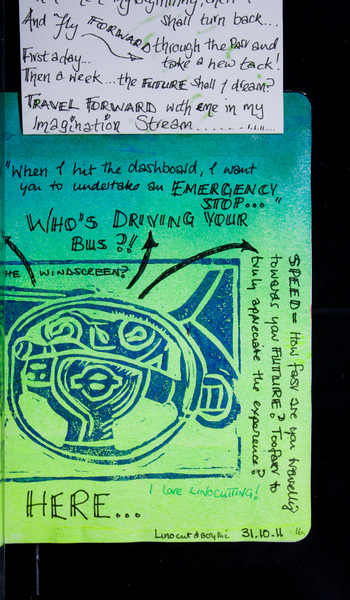 And fly FORWARD shall turn back...
through the PAST and
First a day... take a new tack!
Then a week... the FUTURE shall I dream?
TRAVEL FORWARD with me in my
Imagination Stream...........!!...
"When I hit the dashboard, I want
you to undertake an EMERGENCY
STOP..."
WHO'S DRIVING YOUR
BUS ?!!
HE WINDSCREEN?
SPEED = How fast are you travelling
towards your FUTURE? Too fast to
truly appreciate the experience?
I love LINOCUTTING!
HERE...
Linocut
31.10.11
16.